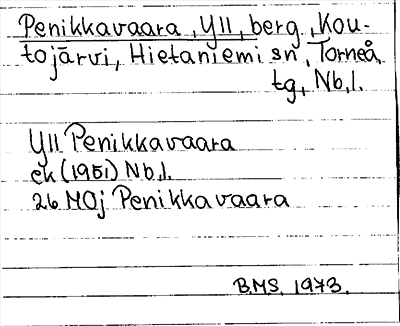 Penikkavaara, Yll, berg, Kou-
tojärvi, Hietaniemi sn, Torneå
tg, Nb.l.
Yll Penikkavaara
ek (1951) Nb.l.
26 M0j Penikkavaara
B.M.S. 1973.